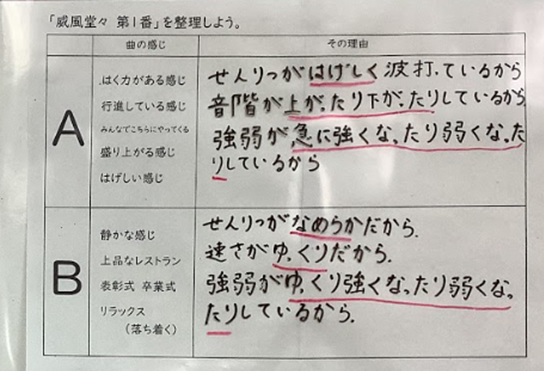 「威風堂々 第1番」を整理しよう。
曲の感じ
その理由
A
はく力がある感じ
行進している感じ
みんなでこちらにやってくる
盛り上がる感じ
はげしい感じ
せんりつがはげしく波打っているから
音階が上がったり下がったりしているから
強弱が急に強くなったり弱くなった
りしているから
B
静かな感じ
上品なレストラン
表彰式 卒業式
リラックス
(落ち着く)
せんりつがなめらかだから.
速さがゆっくりだから.
強弱がゆっくり強くなったり弱くなっ
たりしているから.